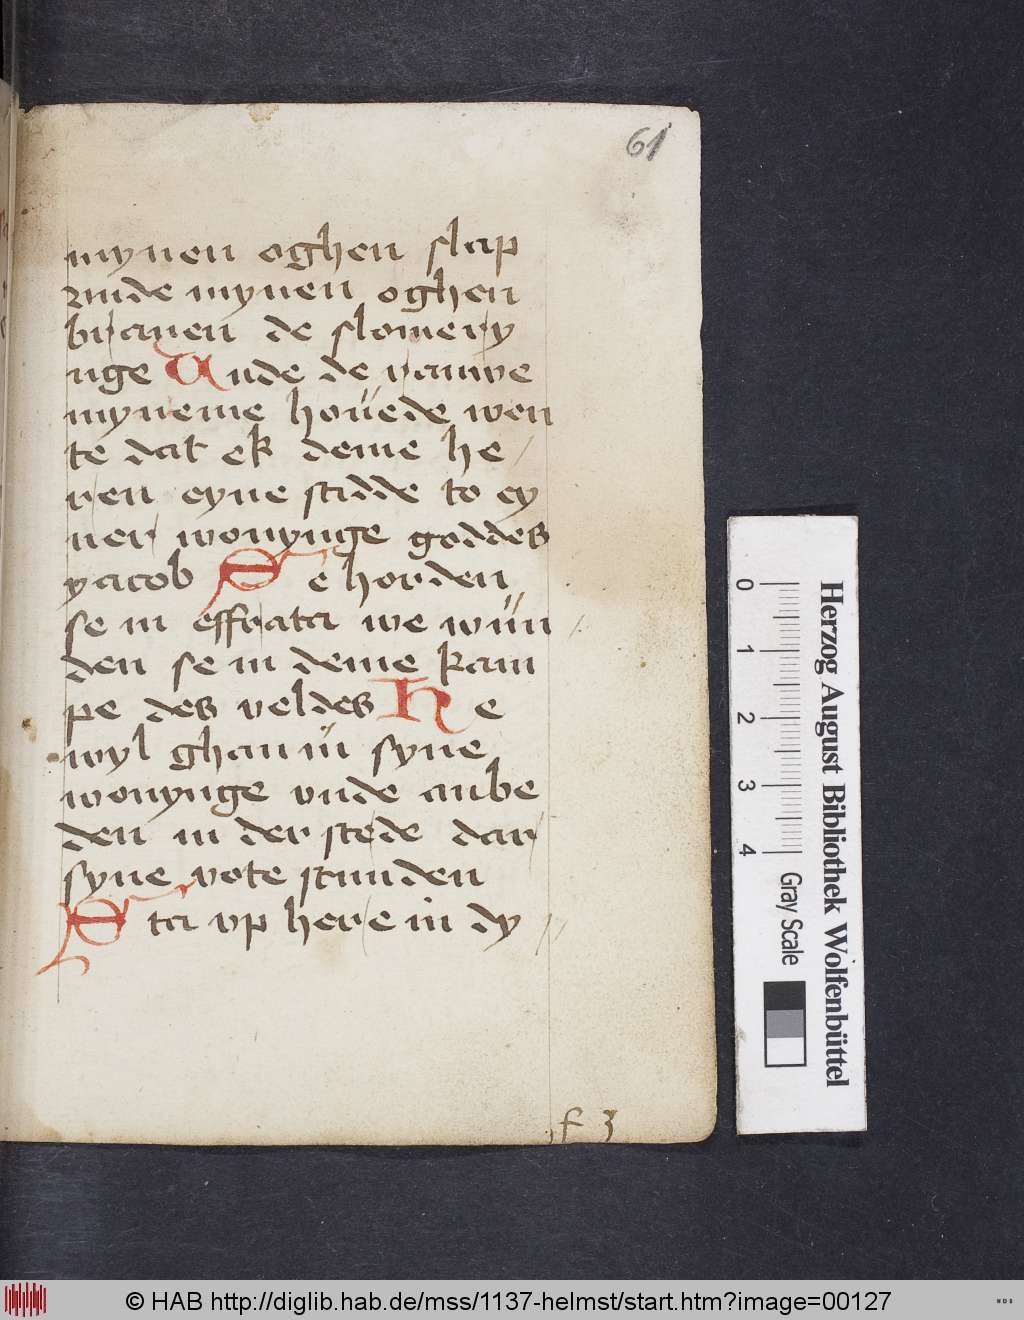 61
mynen oghen slap
unde mynen oghen
branen de slomery
nge Unde de rauwe
myneme houede wen
te dat ek deme he
ren eyne stidde to ey
ner wonynge goddes
yacob Se horden
se in effrata we wun
den se in deme kam
pe des veldes He
wyl ghan in syne
wonynge vnde anbe
den in der stede dar
syne vote stunden
Sta vp here in dy
f 3
Herzog August Bibliothek Wolfenbüttel
0 1 2 3 4 Gray Scale
© HAB http://diglib.hab.de/mss/1137-helmst/start.htm?image=00127